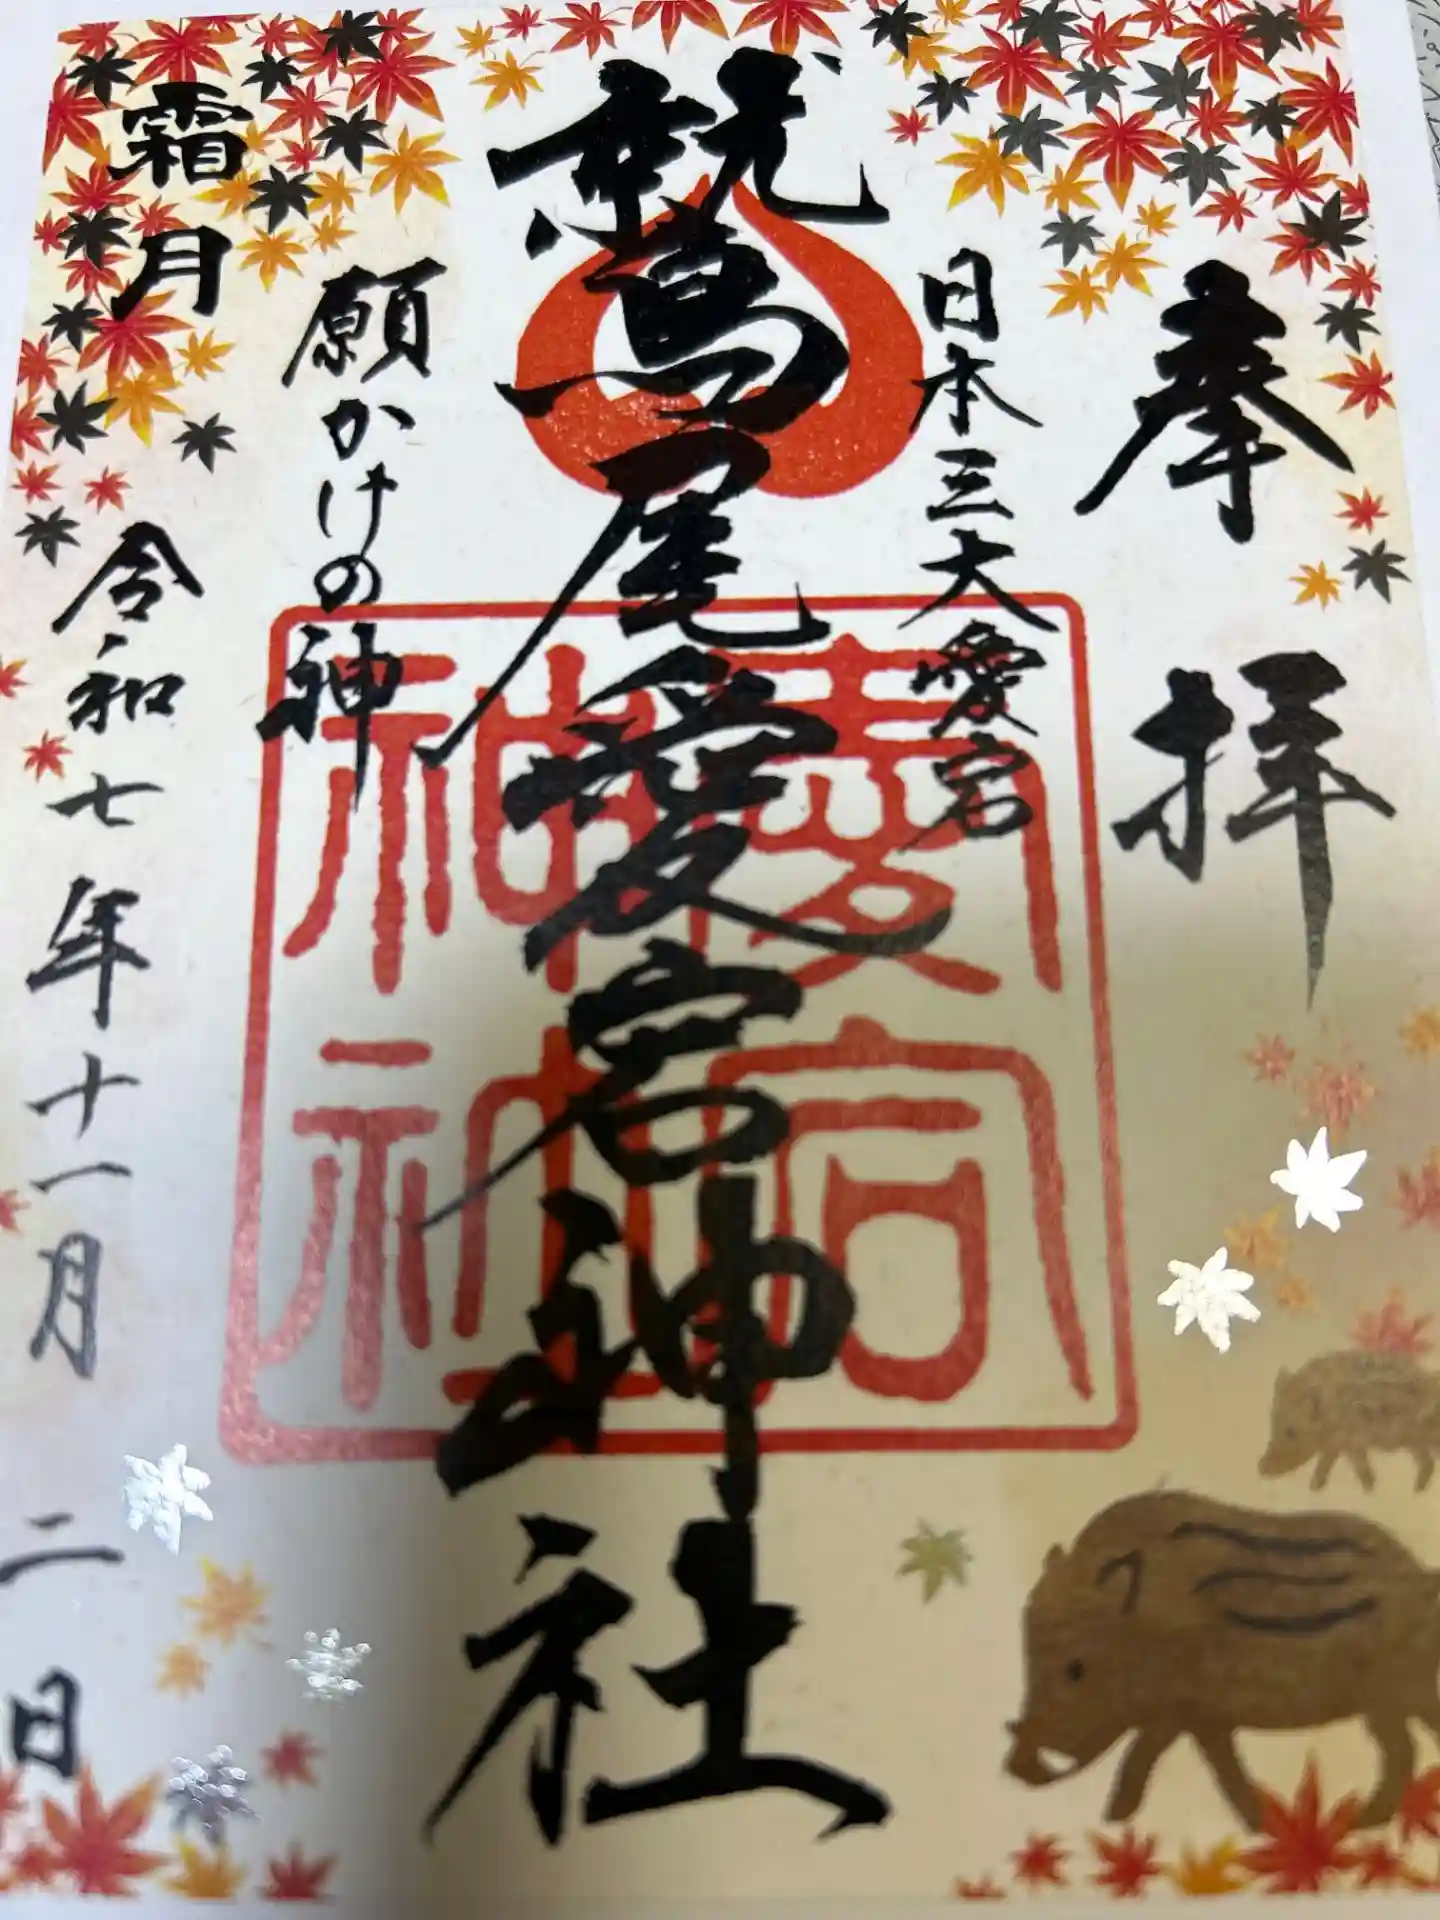 奉拝
日本三大愛宕
鷲尾愛宕神社
愛宕
神社
願かけの神
霜月
令和七年十一月二日